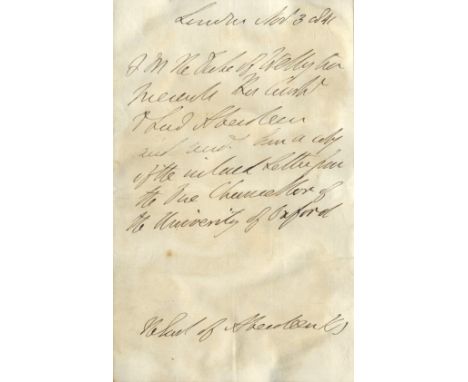 London Nov 3 1841
F M The Duke of Wellington
Presents His Comts
to Lord Aberdeen
and sends him a copy
of the inclosed Letter from
the Vice Chancellor of
the University of Oxford
The Earl of Aberdeen